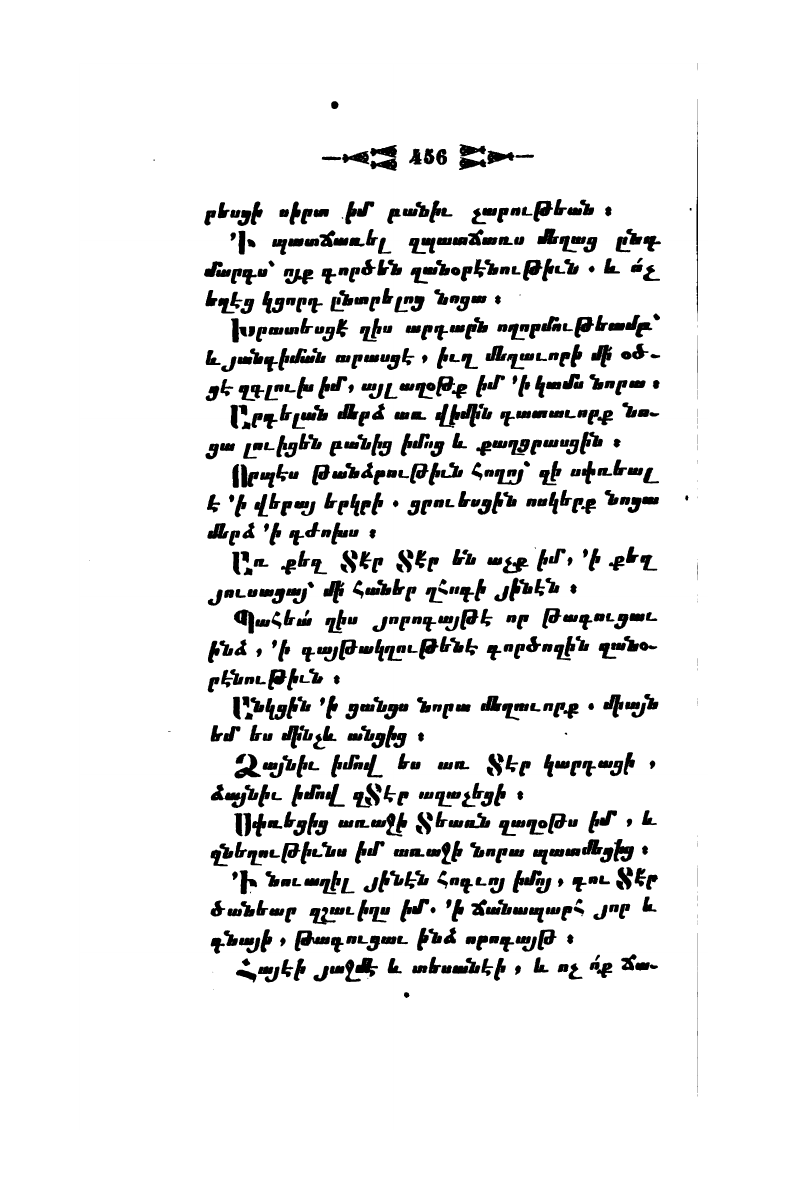 456
րեսցի սիրտ իմ բանիւ չարութեան ։
՚Ի պատճառել զպատճառս մեղաց ընդ
մարդս՝ ոյք գործեն զանօրէնութիւն . և ո՛չ
եղէց կցորդ ընտրելոց նոցա ։
Խրատեսցէ զիս արդարն ողորմութեամբ՝
և յանդիման արասցէ , իւղ մեղաւորի մի՛ օծ֊
ցէ զգլուխ իմ, այլ աղօթք իմ ՚ի կամս նորա ։
Ըրգելան մերձ առ վիմին դատաւորք նո֊
ցա լուիցեն բանից իմոց և քաղցրասցին ։
Որպէս թանձրութիւն հողոյ՝ զի սփռեալ
է ՚ի վերայ երկրի . ցրուեսցին ոսկերք նոցա
մերձ ՚ի դժոխս ։
Առ քեզ Տէր Տէր են աչք իմ, ՚ի քեզ
յուսացայ՝ մի՛ հաներ զհոգի յինէն ։
Պահեա՛ զիս յորոգայթէ որ թագուցաւ
ինձ , ՚ի գայթակղութենէ գործողին զանօ֊
րէնութիւն ։
Անկցին ՚ի ցանցս նորա մեղաւորք . միայն
եմ ես մինչև անցից ։
Ձայնիւ իմով ես առ Տէր կարդացի ,
ձայնիւ իմով զՏէր աղաչեցի ։
Սփռեցից առաջի Տեառն զաղօթս իմ , և
զնեղութիւնս իմ առաջի նորա պատմեցից ։
՚Ի նուաղիլ յինէն հոգւոյ իմոյ , դու Տէր
ծանեար զշաւիղս իմ. ՚ի ճանապարհ յոր և
գնայի , թագուցաւ ինձ որոգայթ ։
Հայէի յաջմէ և տեսանէի , և ոչ ո՛ք ճա֊